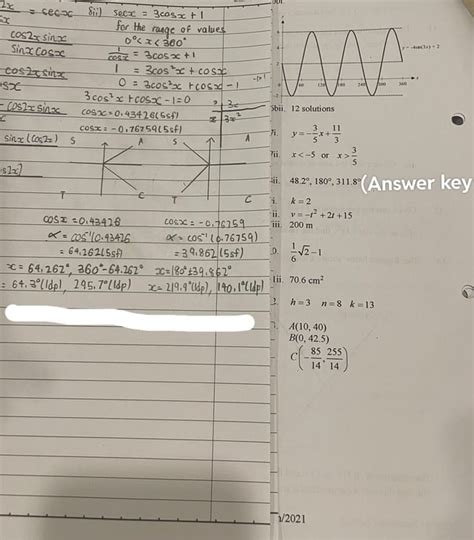 2x = secx 8ii) secx = 3cosx + 1
for the range of values
cos2x sinx 0° < x < 360°
sinx cosx 1/cosx = 3cosx + 1
cos2x sinx 1 = 3cos²x + cosx
sx 0 = 3cos²x + cosx - 1
3cos²x + cosx - 1 = 0
cos2x sinx cosx = 0.43426 (5sf)
cosx = -0.76759 (5sf)
sinx (cos2x) S A S A
s2x]
T C T C
cosx = 0.43426 cosx = -0.76759
α = cos⁻¹(0.43426 α = cos⁻¹(0.76759)
= 64.262 (5sf) = 39.862 (5sf)
x = 64.262°, 360° - 64.262° x = 180° ± 39.862°
= 64.3° (1dp), 295.7° (1dp) x = 219.9° (1dp), 140.1° (1dp)
y = -4sin(3x) + 2
60 120 180 240 300 360
5bii. 12 solutions
7i. y = -3/5 x + 11/3
7ii. x < -5 or x > 3/5
8ii. 48.2°, 180°, 311.8° (Answer key
i. k = 2
ii. v = -t² + 2t + 15
iii. 200 m
0. 1/6 √2 - 1
1ii. 70.6 cm²
2. h = 3 n = 8 k = 13
A(10, 40)
B(0, 42.5)
C(-85/14, 255/14)
/2021